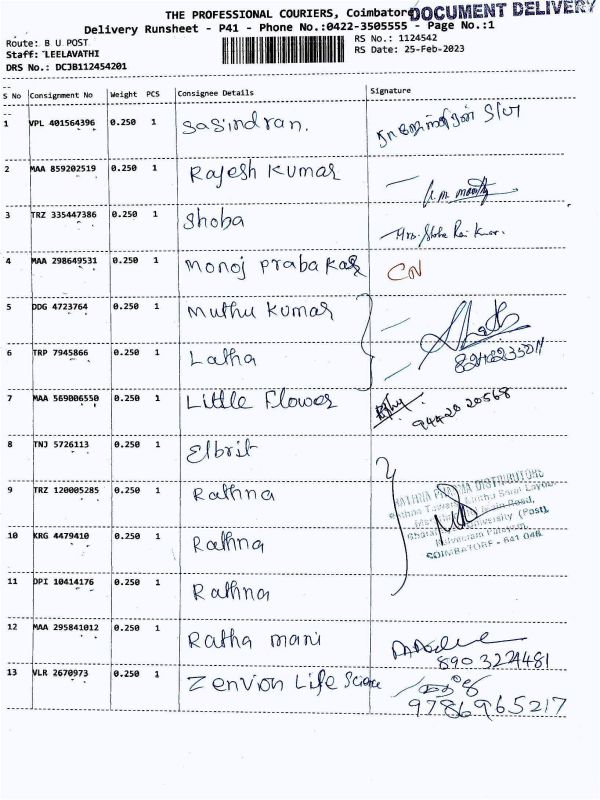 THE PROFESSIONAL COURIERS, Coimbatore
DOCUMENT DELIVERY
Delivery Runsheet - P41 - Phone No.:0422-3505555 - Page No.:1
Route: B U POST
RS No.: 1124542
Staff: LEELAVATHI
RS Date: 25-Feb-2023
DRS No.: DCJB112454201
S No Consignment No Weight PCS Consignee Details Signature
1 VPL 401564396 0.250 1 Sasindran.
2 MAA 859202519 0.250 1 Rajesh Kumar
3 TRZ 335447386 0.250 1 Shoba
4 MAA 298649531 0.250 1 Monoj Prabakar CN
5 DDG 4723764 0.250 1 Muthu Kumar
6 TRP 7945866 0.250 1 Latha
7 MAA 569006550 0.250 1 Little Flower 9442020568
8 TNJ 5726113 0.250 1 Elbrit
9 TRZ 120005285 0.250 1 Rathna
RATHNA PHARMA DISTRIBUTORS
10 KRG 4479410 0.250 1 Rathna
COIMBATORE - 641 046.
11 DPI 10414176 0.250 1 Rathna
12 MAA 295841012 0.250 1 Ratha mani
8903224481
13 VLR 2670973 0.250 1 Zenvion Life Science
9786965217